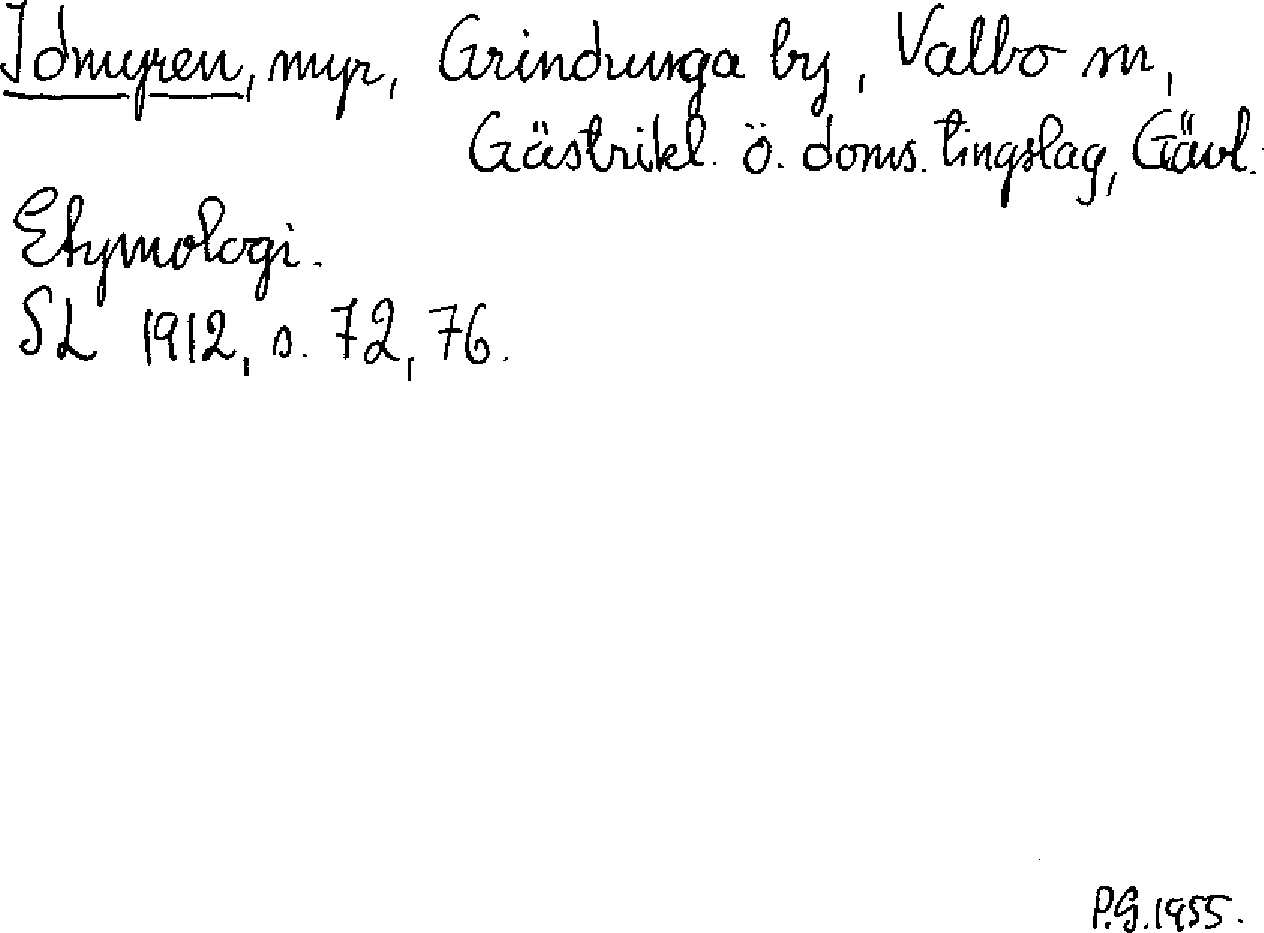 Idmyren, myr, Grindunga by, Valbo sn,
Gästrikl. ö. doms. tingslag, Gävl.
Etymologi.
SL 1912, s. 72, 76.
P.G. 1955.